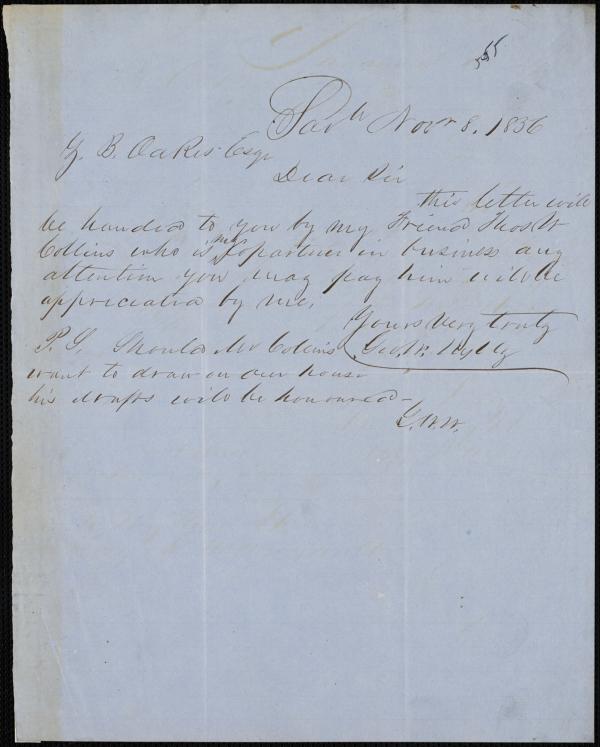 555
Savh Novr 8, 1856
Z. B. Oakes Esqr
Dear Sir
this letter will
be handed to you by my Friend Thos W
Collins who is my Copartner in business any
attention you may pay him will be
appreciated by me,
Yours Very truly
Geo. W. Wylly
P. S, Should Mr Collins
want to draw on our house
his drafts will be honoured—
G. W. W.